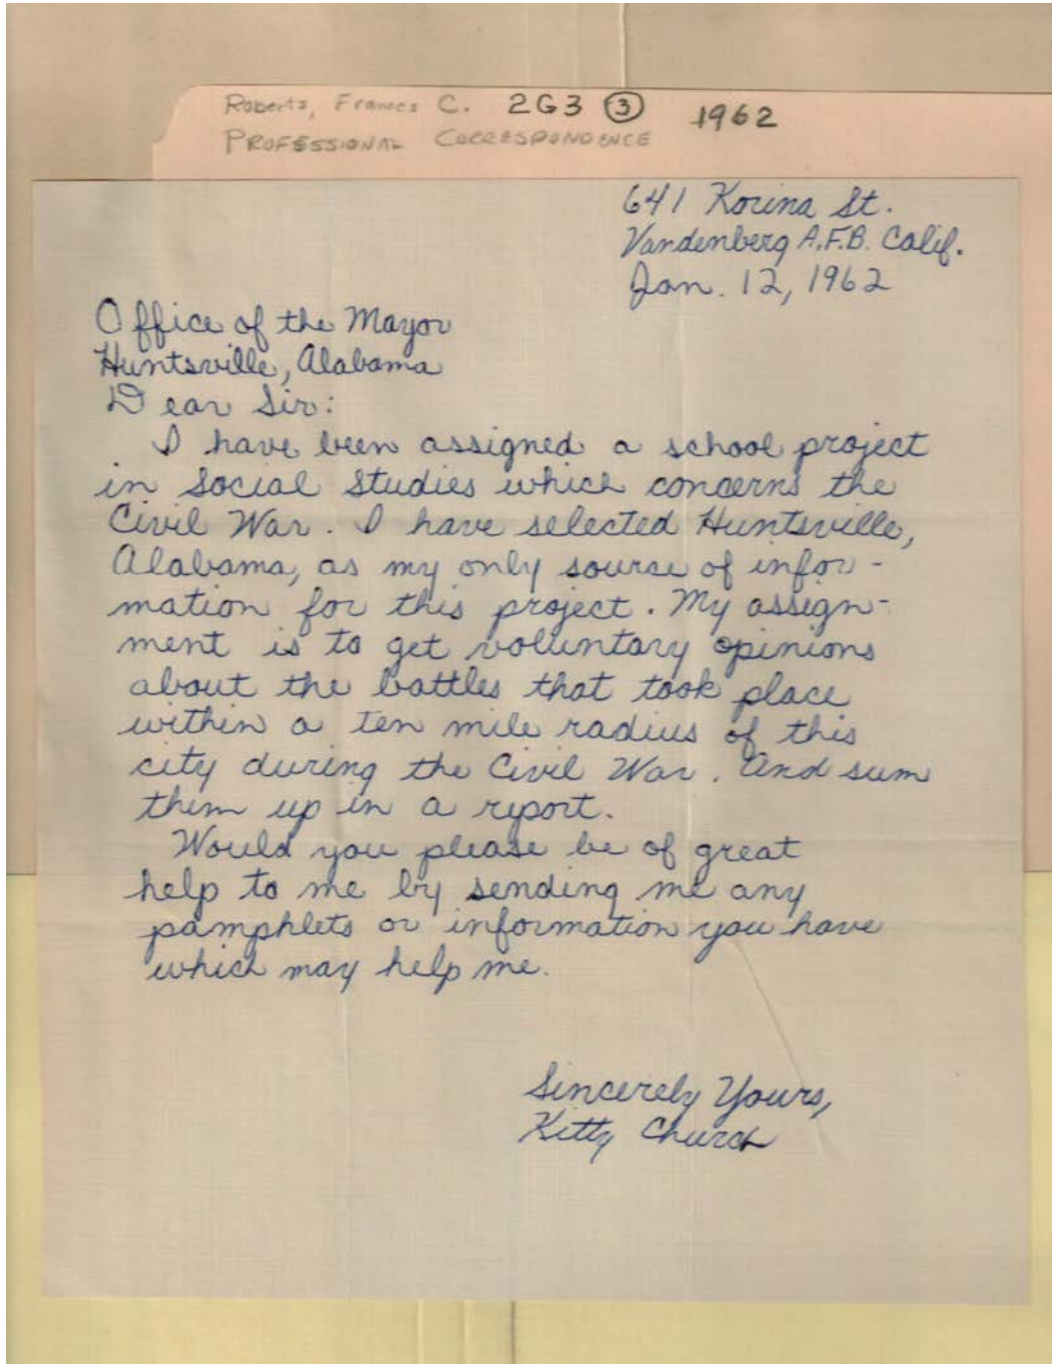 Roberts, Frances C. 2G3 3 1962
PROFESSIONAL CORRESPONDENCE
641 Korina St.
Vandenberg A.F.B. Calif.
Jan. 12, 1962
Office of the Mayor
Huntsville, Alabama
Dear Sir:
I have been assigned a school project
in Social Studies which concerns the
Civil War. I have selected Huntsville,
Alabama, as my only source of infor-
mation for this project. My assign-
ment is to get voluntary opinions
about the battles that took place
within a ten mile radius of this
city during the Civil War. And sum
them up in a report.
Would you please be of great
help to me by sending me any
pamphlets or information you have
which may help me.
Sincerely Yours,
Kitty Church